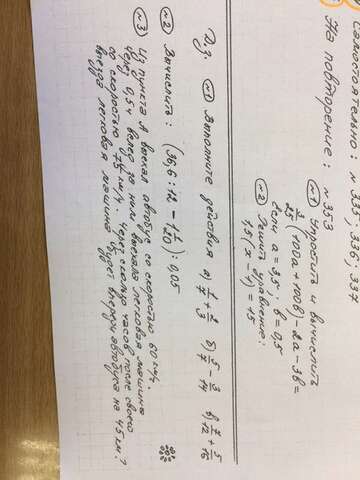 Самостоятельно: № 335; 336; 337
На повторение: № 353
№1 Упростить и вычислить
3/25 (100a + 100b) - 2a - 3b =
если a = 3,5; b = 0,5
№2 Решить уравнение:
1,5(x - 4) = 15
Д.з. №1 Выполните действия а) + 2/3 б) 5/7 - 3/14 в) 7/12 + 5/16
№2 Вычислить: (36,6 : 12 - 1 1/20) : 0,05
№3 Из пункта А выехал автобус со скоростью 60 км/ч.
Через 0,5 ч вслед за ним выехала легковая машина
со скоростью 75 км/ч. Через сколько часов после своего
выезда легковая машина будет впереди автобуса на 45 км?